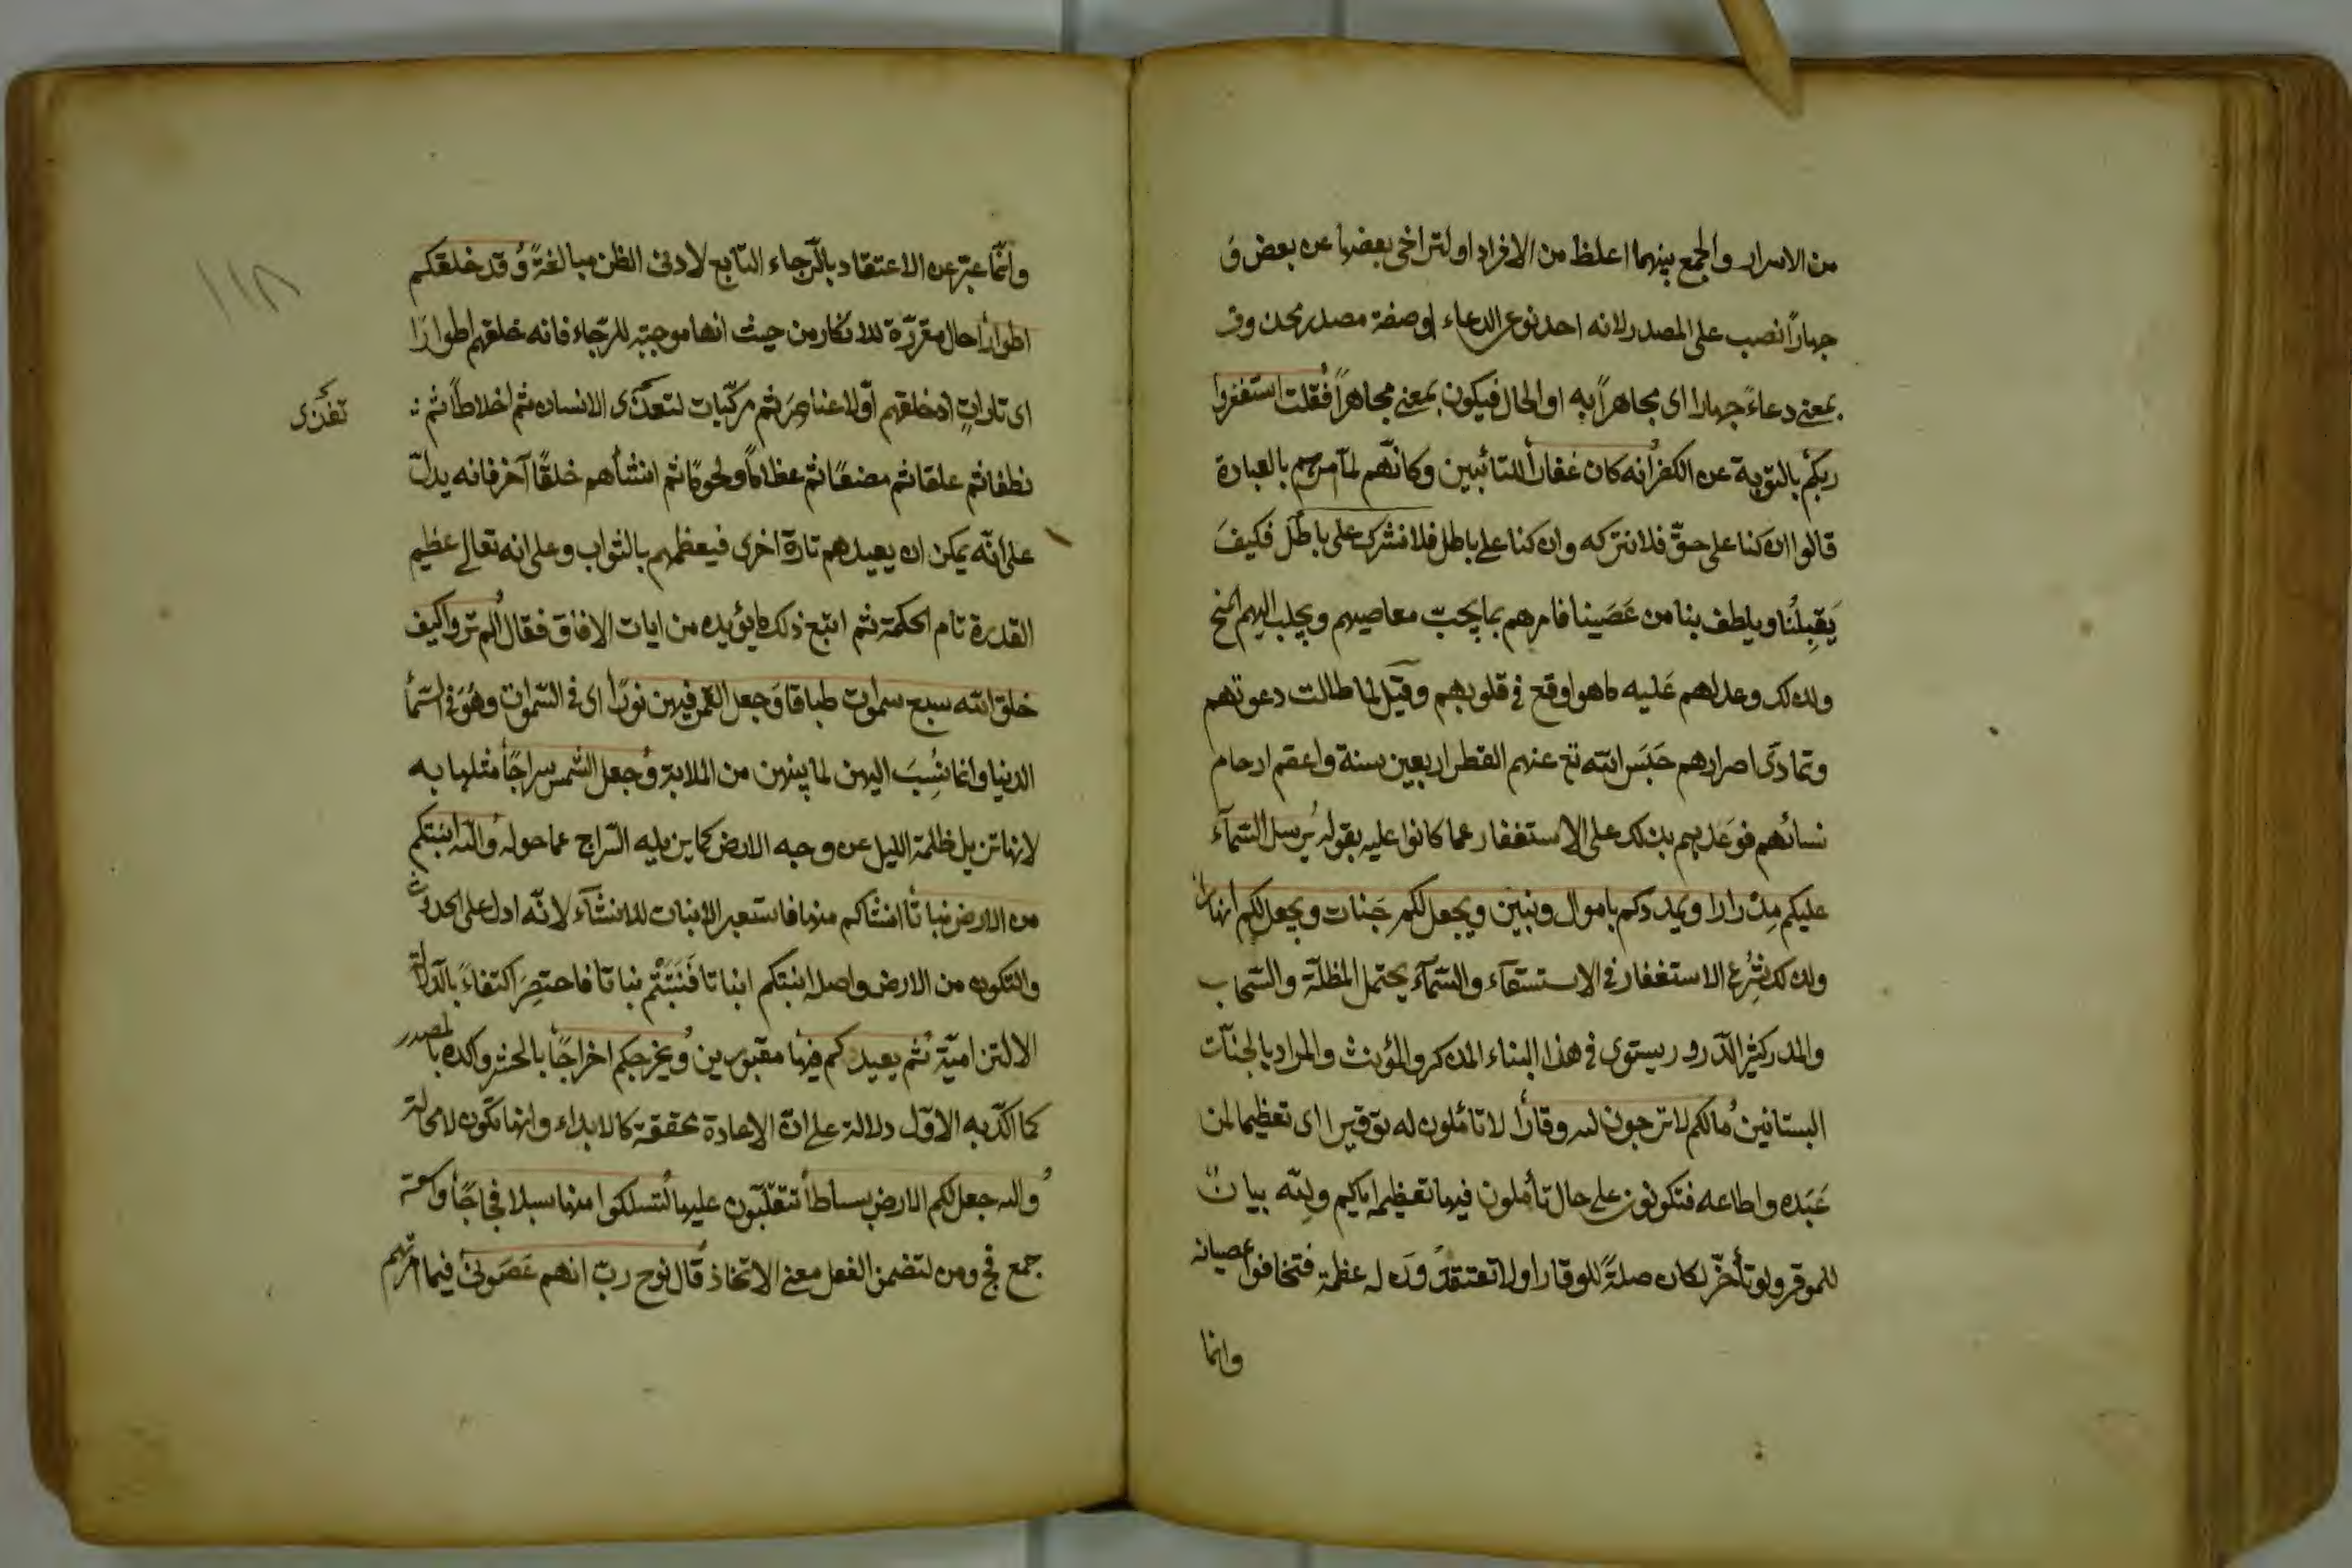 من الاسرار والجمع بينهما اغلظ من الافراد او لتراخى بعضها عن بعض وَ
جهاراً نصب على المصدر لانه احد نوعى الدعاء او صفة مصدر محذوف
بمعنى دعاءً جهارا اى مجاهراً به او الحال فيكون بمعنى مجاهراً فقلت استغفروا
ربكم بالتوبة عن الكفر انه كان غفاراً للتائبين وكانّهم لمّا امرهم بالعبادة
قالوا ان كنا على حقّ فلا نتركه وان كنا على باطل فكيفَ
يَقبلُنا ويلطف بنا من عَصَينا فامرهم بما يجبّ معاصيهم ويجلب اليهم المنح
ولذلك وعدلهم عَليه ما هو اوقع فى قلوبهم وقيل لما طالت دعوتهم
وتمادَى اصرارهم حَبَسَ الله تع عنهم القطر اربعين سنة واعقم ارحام
نسائهم فوَعَدهم بذلك على الاستغفار عما كانوا عليه بقوله يُرسل السّمآء
عليكم مِدْرارا ويمددكم باموال وبَنين ويجعل لكم جَنات ويجعل لكم انهارا
ولذلك شُرِع الاستغفار فى الاستسقآء والسّمآءُ يحتمل المظلّة والسّحاب
والمدرار كثير الدّرور يستوى فى هذا البناء المذكر والمؤنث والمراد بالجنّات
البستانين مالكم لا ترجون لله وقاراً لا تأملون له توقيرا اى تعظيما لمن
عَبَده واطاعه فتكونون على حال تأملون فيها تعظيمه اياكم ولِلّه بيانٌ
للموقر ولو تأخّر لكان صلةً للوقار او لا تعتقدونَ له عظمة فتخافوا عصيانه
وانما
١١٨
وانّما عبّر عن الاعتقاد بالرّجاء التّابع لادنى الظن مبالغةً وَقد خلقكم
اطواراً حال مقرّرة للانكار من حيث انها موجبة للرّجاء فانه خلقهم اطوارًا
اى تاراتٍ اذ خلقهم اوّلا عناصِرَ ثم مركّبات لتعذّى الانسان ثم اخلاطاً ثم
تغذّى
نطفا ثم علقا ثم مضغًا ثم عظاماً ولحومًا ثم انشأهم خلقًا آخر فانه يدلّ
على انّه يمكن ان يعيدهم تارة اخرى فيعظمهم بالثواب وعلى انه تعالى عظيم
القدرة تام الحكمة ثم اتبع ذلك ما يؤيده من ايات الافاق فقال الَم تَروا كيف
خلق الله سبع سموات طباقا وَجعل القمر فيهن نورًا اى فى السّموات وهُوَ فى السّمأ
الدنيا وانما نُسِبَ اليهن لما بينهن من الملابسة وَجعل الشمس سراجًا مثلها به
لانها تزيل ظلمة الليل عن وجه الارض كما يزيله السّراج عما حوله والله انبتكم
من الارض نباتا انشأكم منها فاستعير الانبات للانشآء لانّه ادل على الحدوث
والتكون من الارض واصله انبتكم انباتا فَنَبَتّم نباتا فاختصِرَ اكتفاءً بالدّلالة
الالتزاميّة ثم يعيدكم فيها مقبورين ويخرجكم اخراجًا بالحشر واكده بالمصدر
كما اكّد به الاوّل دلالة على انّ الاعادة محققة كالابداء وانها تكون لا محالة
والله جعل لكم الارض بساطاً تتقلّبون عليها لتسلكوا منها سبلا فجاجًا واسعة
جمع فج ومن لتضمن الفعل معنى الاتخاذ قال نوح ربّ انهم عَصَونى فيما امرتهم